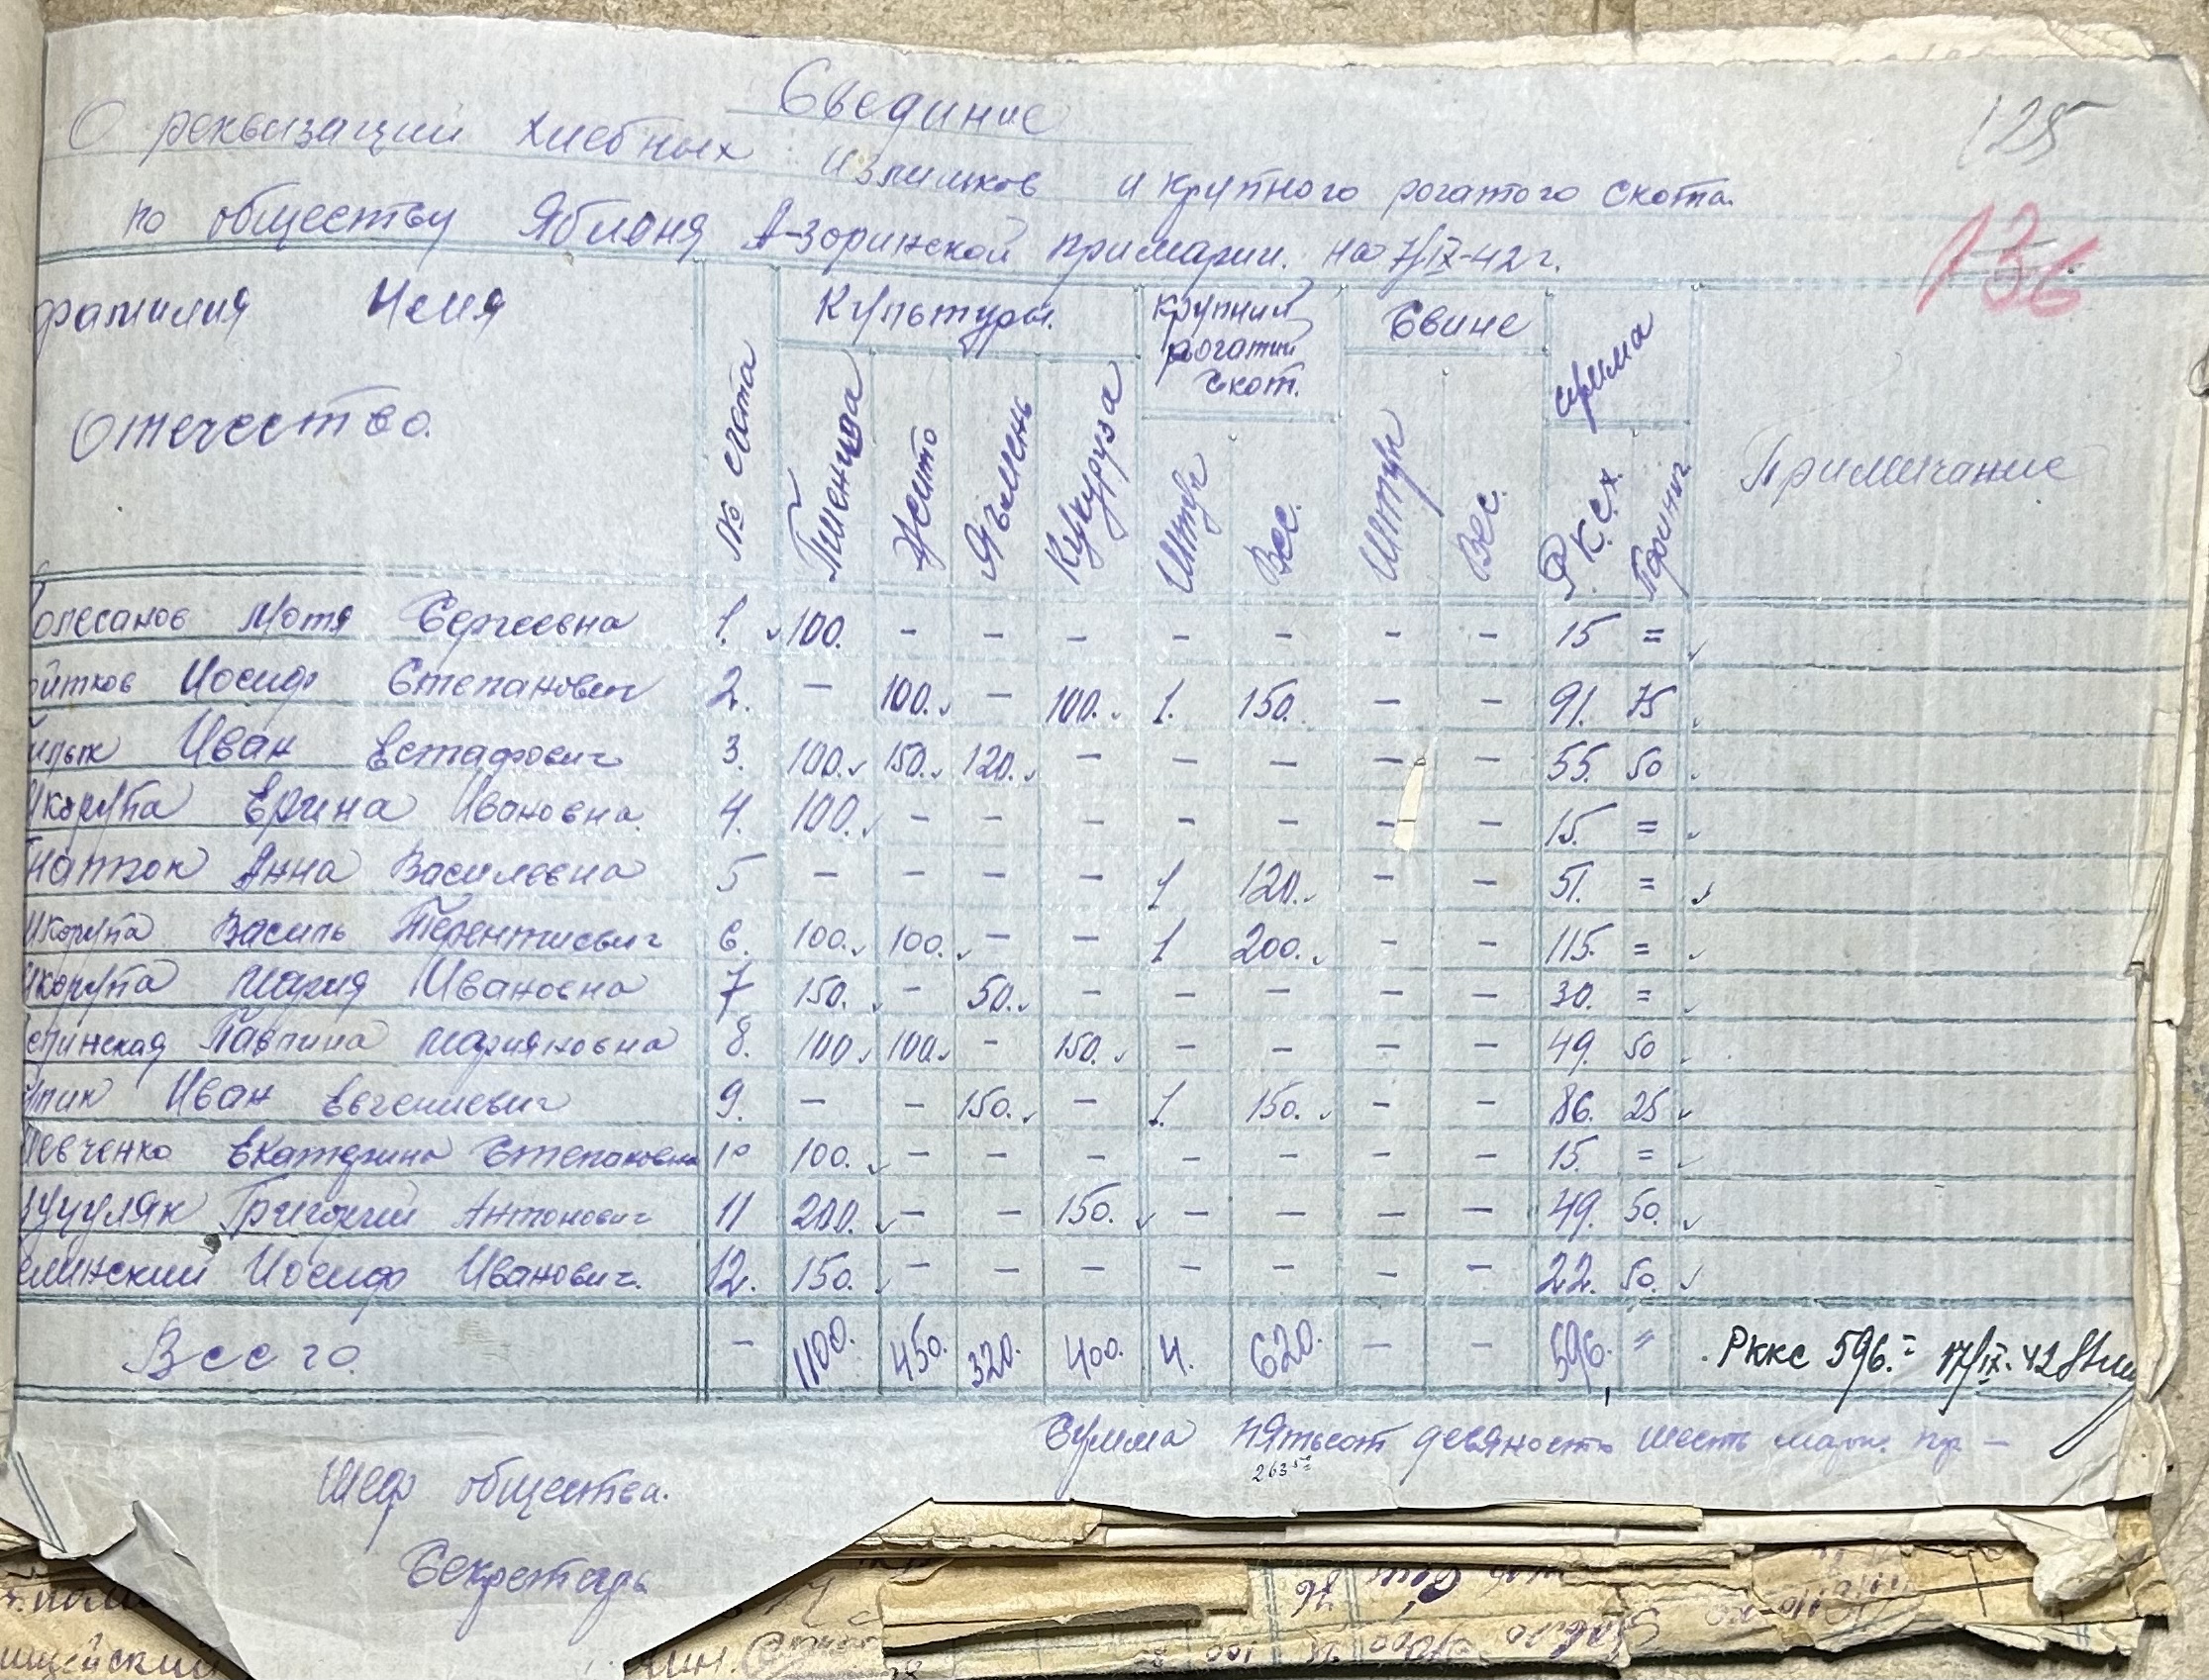 Свединие
125
О реквизации хлебных излишков и крупного рогатого скота.
136
по обществу Яблоня А-Зоринской примарии. на 7/IX-42 г.
фамилия Имя Отечество.
№ счета
Культуры.
Пшеница Жито Ячмень Кукуруза
крупний рогатий скот.
Штук Вес.
Свине
Штук Вес.
сумма
Р.К.С.х. Пфениг
Примичание
олесанов Мотя Сергеевна 1. 100. - - - - - - - 15 =
ойтков Иосиф Степанович 2. - 100. - 100. 1. 150. - - 91. 75
илык Иван Евстафович 3. 100. 150. 120. - - - - - 55. 50
Шкорупа Ерина Ивановна. 4. 100. - - - - - - - 15. =
натюк Анна Василевна 5 - - - - 1 120. - - 51. =
Шкорупа Василь Терентиевич 6. 100. 100. - - 1 200. - - 115. =
Шкорупа Мария Ивановна 7 150. - 50. - - - - - 30. =
елинская Павлина Марияновна 8. 100. 100. - 150. - - - - 49. 50
Иван Евгениевич 9. - - 150. - 1. 150. - - 86. 25
Шевченко Екатерина Степановна 10 100. - - - - - - - 15. =
уцуляк Григорий Антонович 11 200. - - 150. - - - - 49. 50.
елинский Иосиф Иванович. 12. 150. - - - - - - - 22. 50.
Всего. - 1100. 450. 320. 400. 4. 620. - - 596. = Рккс 596.= 17/IX.42
Сумма пятьсот девяносто шесть марок
263 50
Шеф общества.
Секретарь